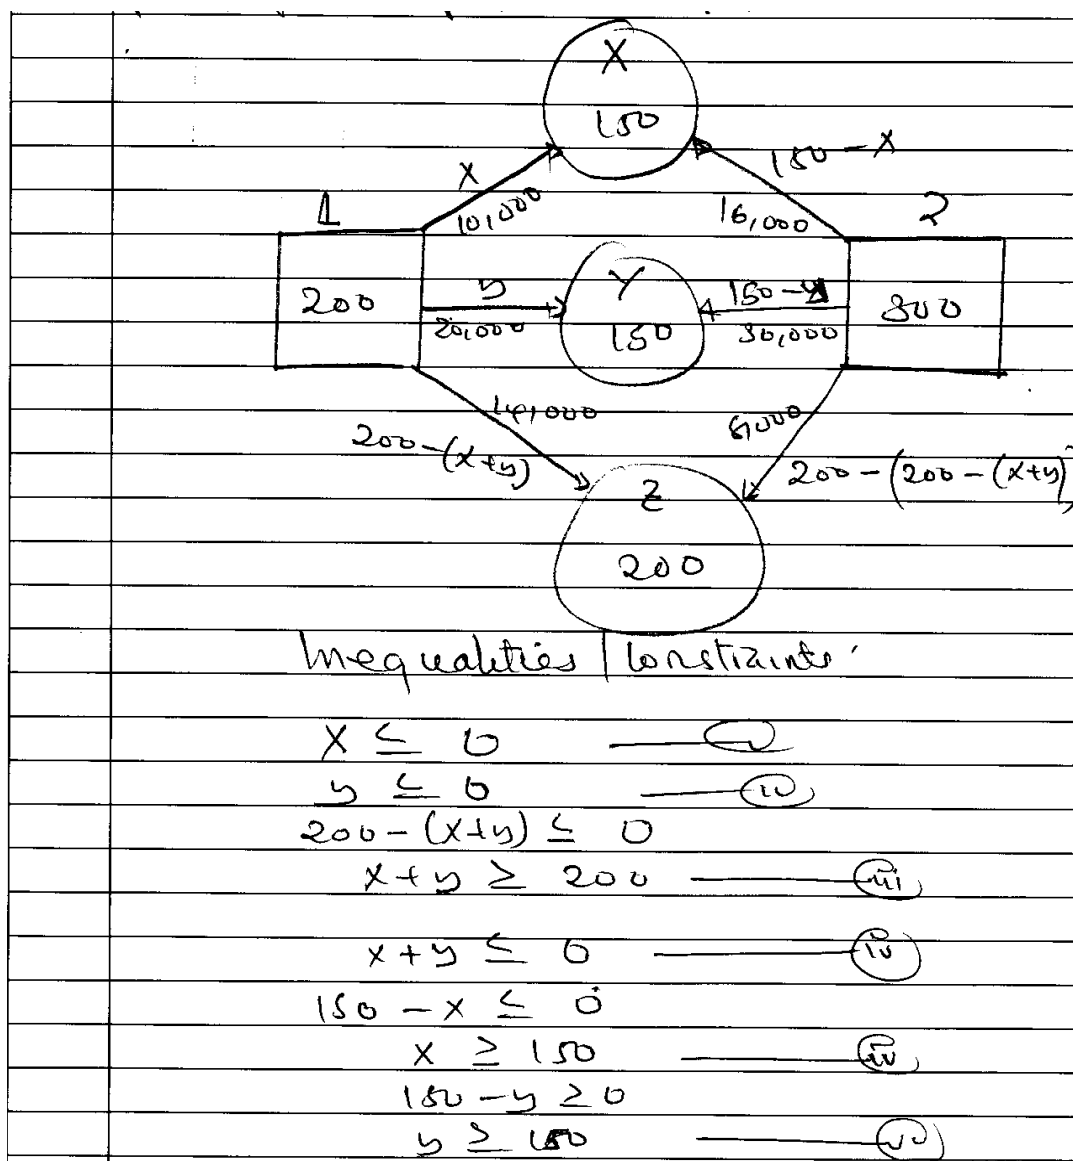 X
150
X
10,000
150 - X
16,000
1
200
y
20,000
Y
150
150 - y
30,000
2
300
14,000
200 - (x+y)
6,000
200 - (200 - (x+y)
Z
200
Inequalities / Constraints
x ≤ 0
y ≤ 0
200 - (x+y) ≤ 0
x + y ≥ 200 iii
x + y ≤ 0 iv
150 - x ≤ 0
x ≥ 150
150 - y ≥ 0
y ≥ 150